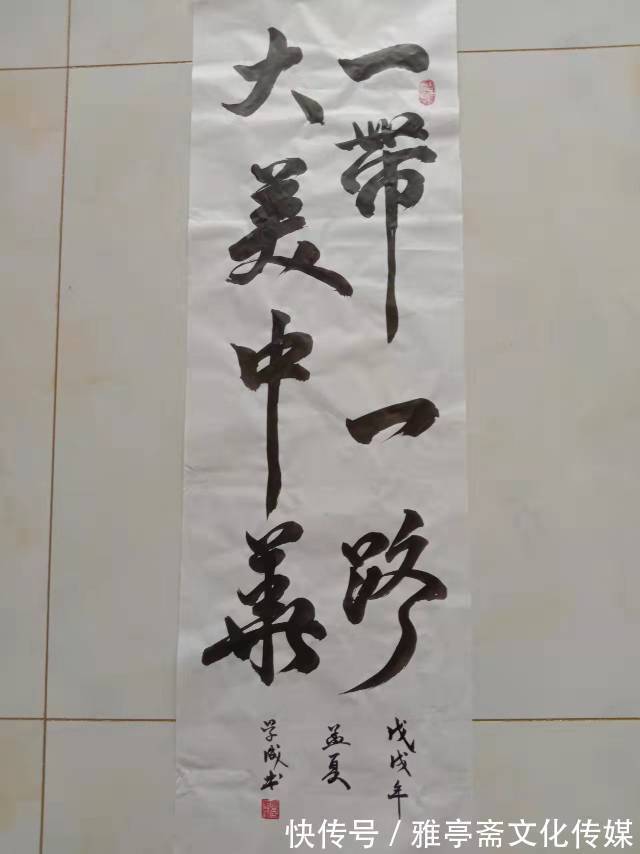 一帶一路
大美中華
戊戌年
孟夏
学成书
快传号／雅亭斋文化传媒